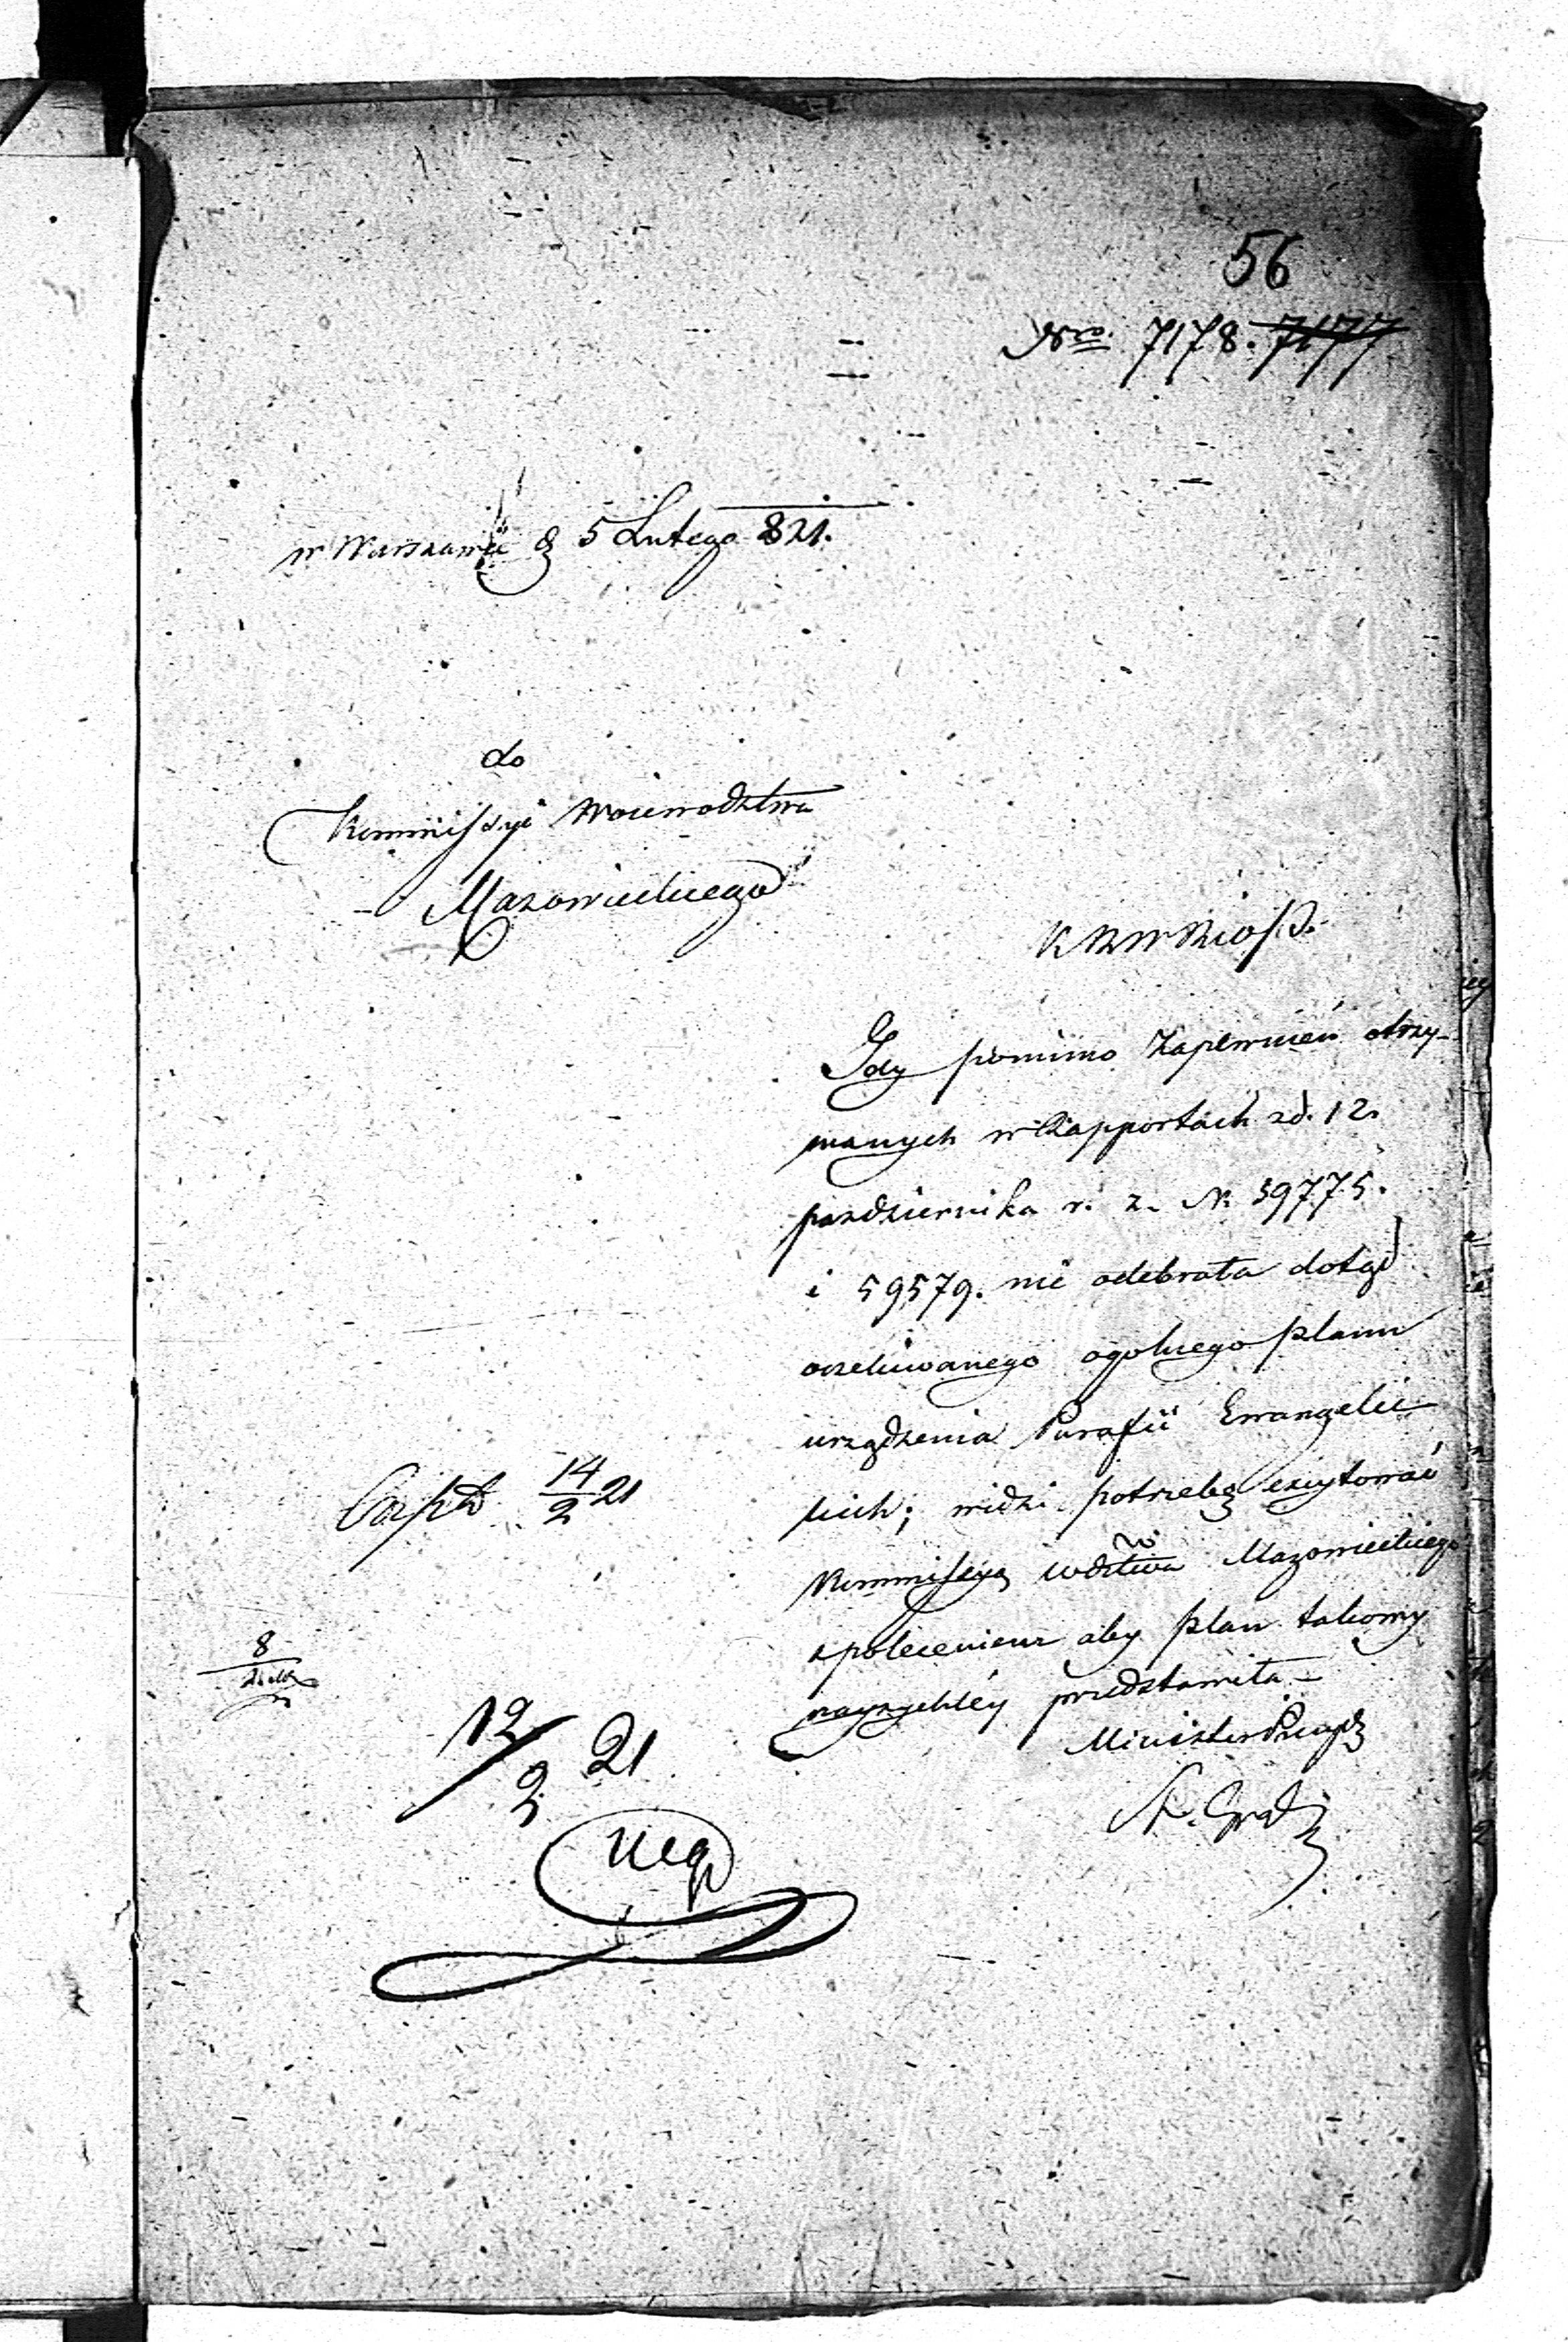 56
Nro. 7178. 7177
w Warszawie d 5 Lutego 821.
do
Kommissyi Woiewodztwa
Mazowieckiego
K R W R i O P.
Gdy pomimo Zapewnień otrzy-
manych w Rapportach z d. 12.
pazdziernika r. z. N. 59775.
i 59579. nie odebrała dotąd
oczekiwanego ogolnego planu
urządzenia Parafii Ewangelic-
kich; widzi potrzebę excytować
Kommissyą Wdztwa Mazowieckiego
z poleceniem aby plan takowy
nayrychléy przedstawiła –
Minister Prezyd
St. Grab
Exp 14/2 21
8
12/2 21